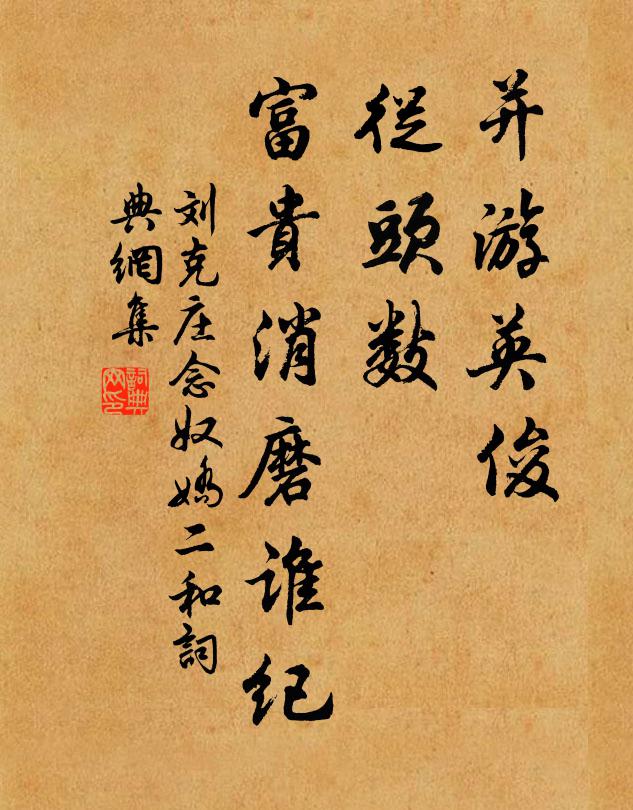 并游英俊
從頭數
富貴消磨誰紀
刘克庄念奴嬌二和詞
典網集
詞典
网印